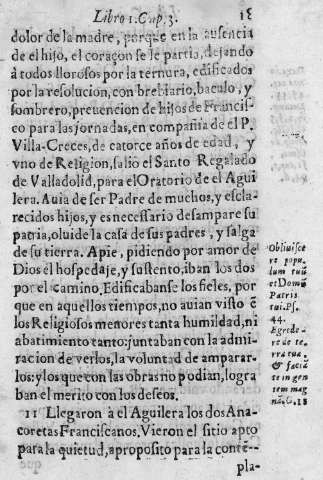 Libro 1. Cap. 3.
dolor de la madre, porque en la ausencia
de el hijo, el coraçon se le partia, dejando
à todos llorosos por la ternura, edificados
por la resolucion, con brebiario, baculo, y
sombrero, preuencion de hijos de Francis-
co para las jornadas, en compañia de el P.
Villa-Creces, de catorce años de edad, y
vno de Religion, salio el Santo Regalado
de Valladolid, para el Oratorio de el Agui
lera. Auia de ser Padre de muchos, y escla-
recidos hijos, y es necessario desampare su
patria, oluide la casa de sus padres, y salga
de su tierra. Apie, pidiendo por amor de
Dios el hospedaje, y sustento, iban los dos
por el camino. Edificabanse los fieles, por
que en aquellos tiempos, no auian visto ẽ
los Religiosos menores tanta humildad, ni
abatimiento tanto: juntaban con la admi-
racion de verlos, la voluntad de amparar-
los: y los que con las obras no podian, logra
ban el merito con los deseos.
11 Llegaron à el Aguilera los dos Ana-
coretas Franciscanos. Vieron el sitio apto
para la quietud, aproposito para la contẽ-
pla-
Obliuisce
re popu
lum tuũ
et Domũ
Patris
tui. Ps.
44.
Egrede-
re de te-
rra tua
& faciã
te in gen
tem mag
nã. G. 12